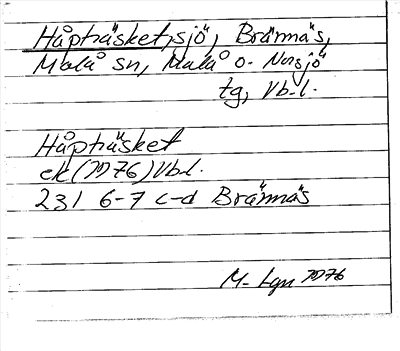 Håpträsket, sjö, Brännäs,
Malå sn, Malå o. Norsjö
tg, Vb.l.
Håpträsket
ek (1976) Vbl.
231 6-7 c-d Brännäs
M- Lgn 1976